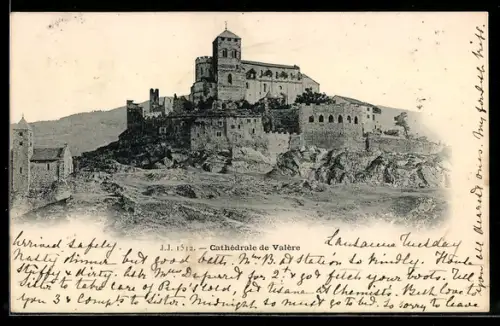 J.J. 1512. — Cathédrale de Valère
Arrived Safely. Lausanne Tuesday
Nasty dinner but good beds. Mr B. at Station so kindly. Hotel
Stuffy & dirty. Ask Mrs for 2/ & get your boots. Tell
to take care of cold, get at Chemist's. Best
you 3 & Compts to Sister. Midnight so must go to bed. So sorry to leave
you all dearest ones. My fond kiss.